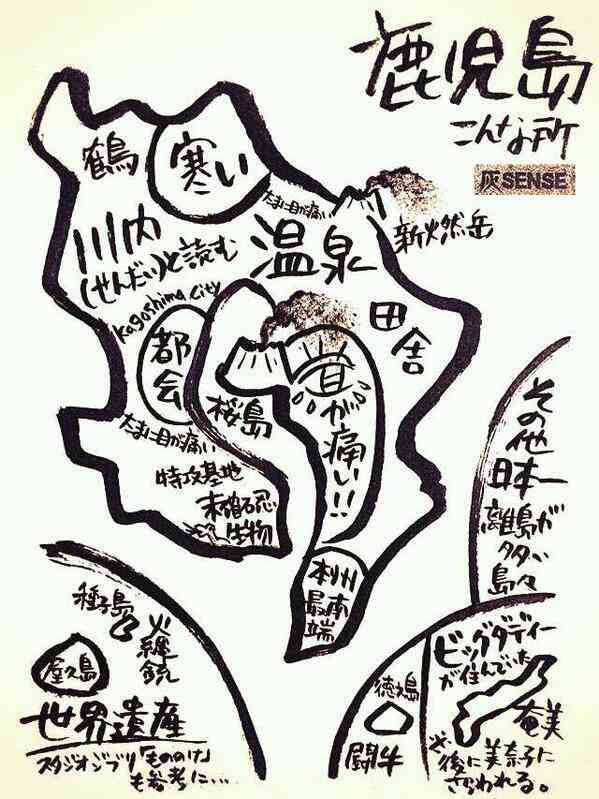 鹿児島
こんな所
灰SENSE
鶴
寒い
たまに目が痛い
新燃岳
川内
(せんだい)と読む
温泉
Kagoshima City
都会
田舎
桜島
目が痛い!!
たまに目が痛い
特攻基地
未確認
生物
本州
最南
端
その他
日本一
離島が
多い
島々
種子島
火縄銃
屋久島
世界遺産
スタジオジブリ「もののけ」
も参考に…
徳之島
闘牛
ビッグダディー
が住んでいた
奄美
※後に美奈子に
さらわれる。